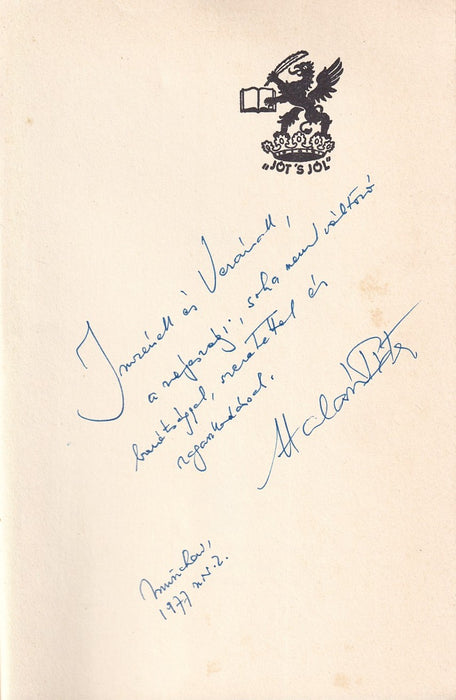 „JÓT 'S JÓL"
Imrének és Verának,
a régi, soha nem változó
barátsággal, szeretettel és
ragaszkodással.
Halász Péter
München,
1977